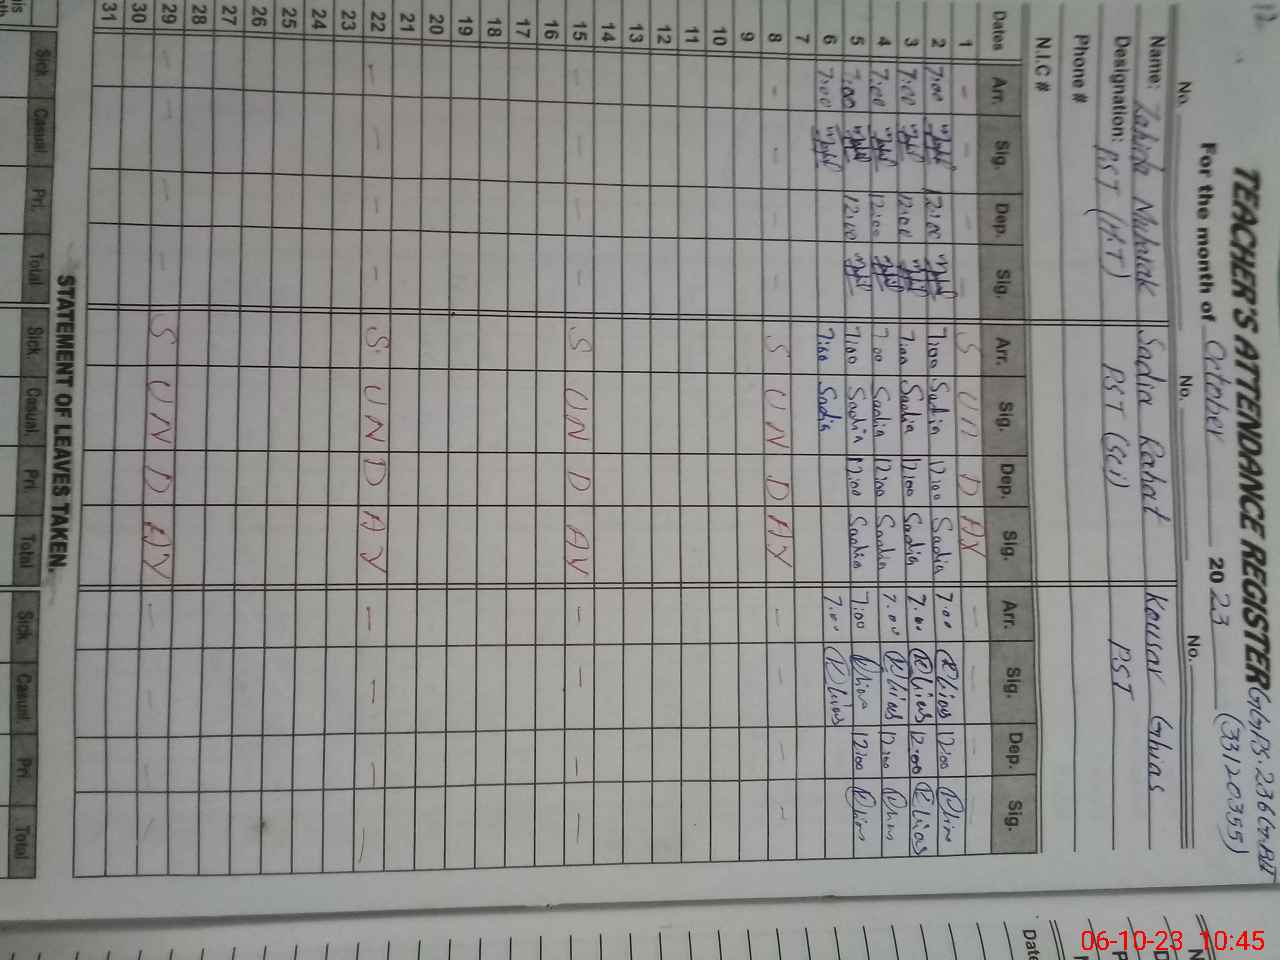 12
TEACHER'S ATTENDANCE REGISTER GGPS.236GB.PII
(33120355)
For the month of October 2023
No. No. No.
Name: Zahida Mubarak Sadia Rahat Kousar Ghias
Designation: PST (HT) PST (Sci) PST
Phone #
N.I.C #
Dates Arr. Sig. Dep. Sig. Arr. Sig. Dep. Sig. Arr. Sig. Dep. Sig.
1 - - - - S U N D A Y - - - -
2 7:00 12:00 7:00 Sadia 12:00 Sadia 7:00 Ghias 12:00
3 7:00 12:00 7:00 Sadia 12:00 Sadia 7:00 Ghias 12:00 Ghias
4 7:00 12:00 7:00 Sadia 12:00 Sadia 7:00 Ghias 12:00
5 7:00 12:00 7:00 Sadia 12:00 Sadia 7:00 12:00
6 7:00 7:00 Sadia 7:00 Ghias
7
8 - - - - S U N D A Y - - - -
9
10
11
12
13
14
15 - - - - S U N D A Y - - - -
16
17
18
19
20
21
22 - - - - S U N D A Y - - - -
23
24
25
26
27
28
29 - - - - S U N D A Y - - - -
30
31
STATEMENT OF LEAVES TAKEN.
Sick. Casual. Pri. Total Sick. Casual. Pri. Total Sick. Casual. Pri. Total
06-10-23 10:45